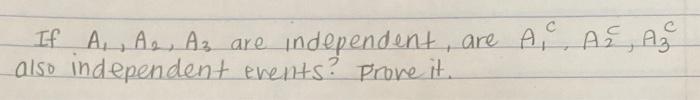 If A₁, A₂, A₃ are independent, are A₁ᶜ, A₂ᶜ, A₃ᶜ
also independent events? Prove it.